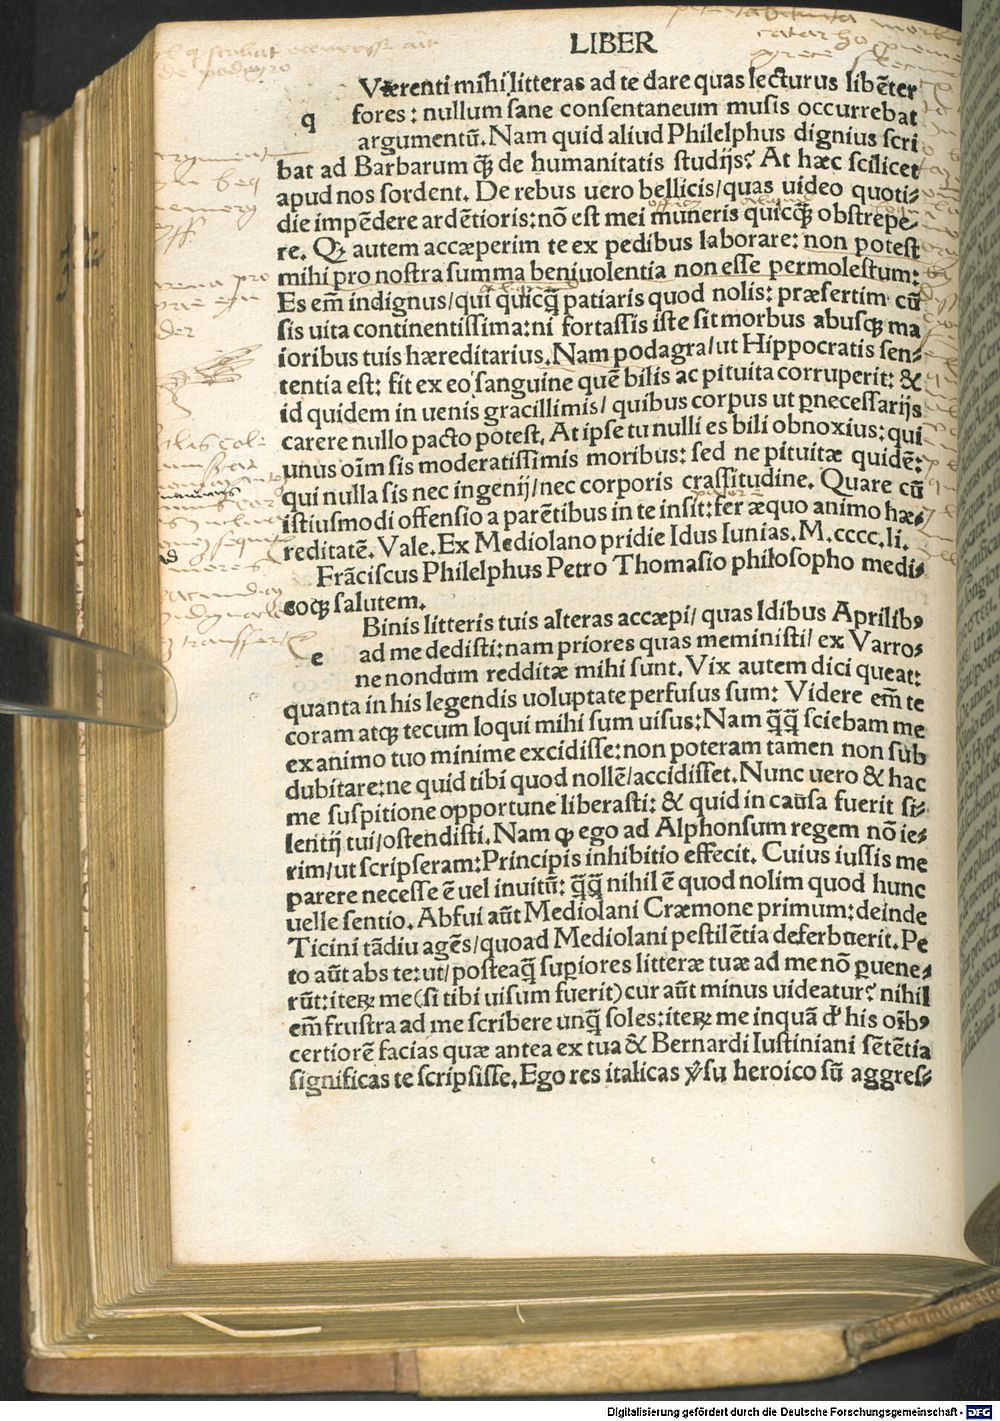 LIBER
Værenti mihi litteras ad te dare quas lecturus libẽter
q fores: nullum sane consentaneum musis occurrebat
argumentũ. Nam quid aliud Philelphus dignius scri
bat ad Barbarum q̃ꝫ de humanitatis studijs? At hæc scilicet
apud nos sordent. De rebus uero bellicis/quas uideo quoti⸗
die impẽdere ardẽtioris: nõ est mei muneris quicq̃ꝫ obstrepe⸗
re. Qꝫ autem accæperim te ex pedibus laborare: non potest
mihi pro nostra summa beniuolentia non esse permolestum:
Es em̃ indignus/qui quicq̃ patiaris quod nolis: præsertim cũ
sis uita continentissima: ni fortassis iste sit morbus abusqꝫ ma
ioribus tuis hæreditarius. Nam podagra/ut Hippocratis sen⸗
tentia est: fit ex eo sanguine quẽ bilis ac pituita corruperit: &
id quidem in uenis gracillimis/ quibus corpus ut ꝑnecessarijs
carere nullo pacto potest. At ipse tu nulli es bili obnoxius: qui
unus oĩm sis moderatissimis moribus: sed ne pituitæ quidẽ:
qui nulla sis nec ingenij/nec corporis crassitudine. Quare cũ
istiusmodi offensio a parẽtibus in te insit: fer æquo animo hæ⸗
reditatẽ. Vale. Ex Mediolano pridie Idus Iunias. M.cccc.li.
Frãciscus Philelphus Petro Thomasio philosopho medi⸗
coqꝫ salutem.
Binis litteris tuis alteras accæpi/ quas Idibus Aprilibꝰ
e ad me dedisti: nam priores quas meministi/ ex Varro⸗
ne nondum redditæ mihi sunt. Vix autem dici queat:
quanta in his legendis uoluptate perfusus sum: Videre em̃ te
coram atqꝫ tecum loqui mihi sum uisus: Nam q̃q̃ sciebam me
ex animo tuo minime excidisse: non poteram tamen non sub
dubitare: ne quid tibi quod nollẽ/accidisset. Nunc uero & hac
me suspitione opportune liberasti: & quid in causa fuerit si⸗
lentij tui/ostendisti. Nam ꝙ ego ad Alphonsum regem nõ ie⸗
rim/ut scripseram: Principis inhibitio effecit. Cuius iussis me
parere necesse ẽ uel inuitũ: q̃q̃ nihil ẽ quod nolim quod hunc
uelle sentio. Abfui aũt Mediolani Cræmone primum: deinde
Ticini tãdiu agẽs/quoad Mediolani pestilẽtia deferbuerit. Pe
to aũt abs te: ut/ posteaq̃ supiores litteræ tuæ ad me nõ ꝑuene⸗
rũt: iterꝫ me (si tibi uisum fuerit) cur aũt minus uideatur? nihil
em̃ frustra ad me scribere unq̃ soles: iterꝫ me inquã đ his oĩbꝰ
certiorẽ facias quæ antea ex tua & Bernardi Iustiniani sẽtẽtia
significas te scripsisse. Ego res italicas ꝟsu heroico sũ aggres⸗
Digitalisierung gefördert durch die Deutsche Forschungsgemeinschaft - DFG